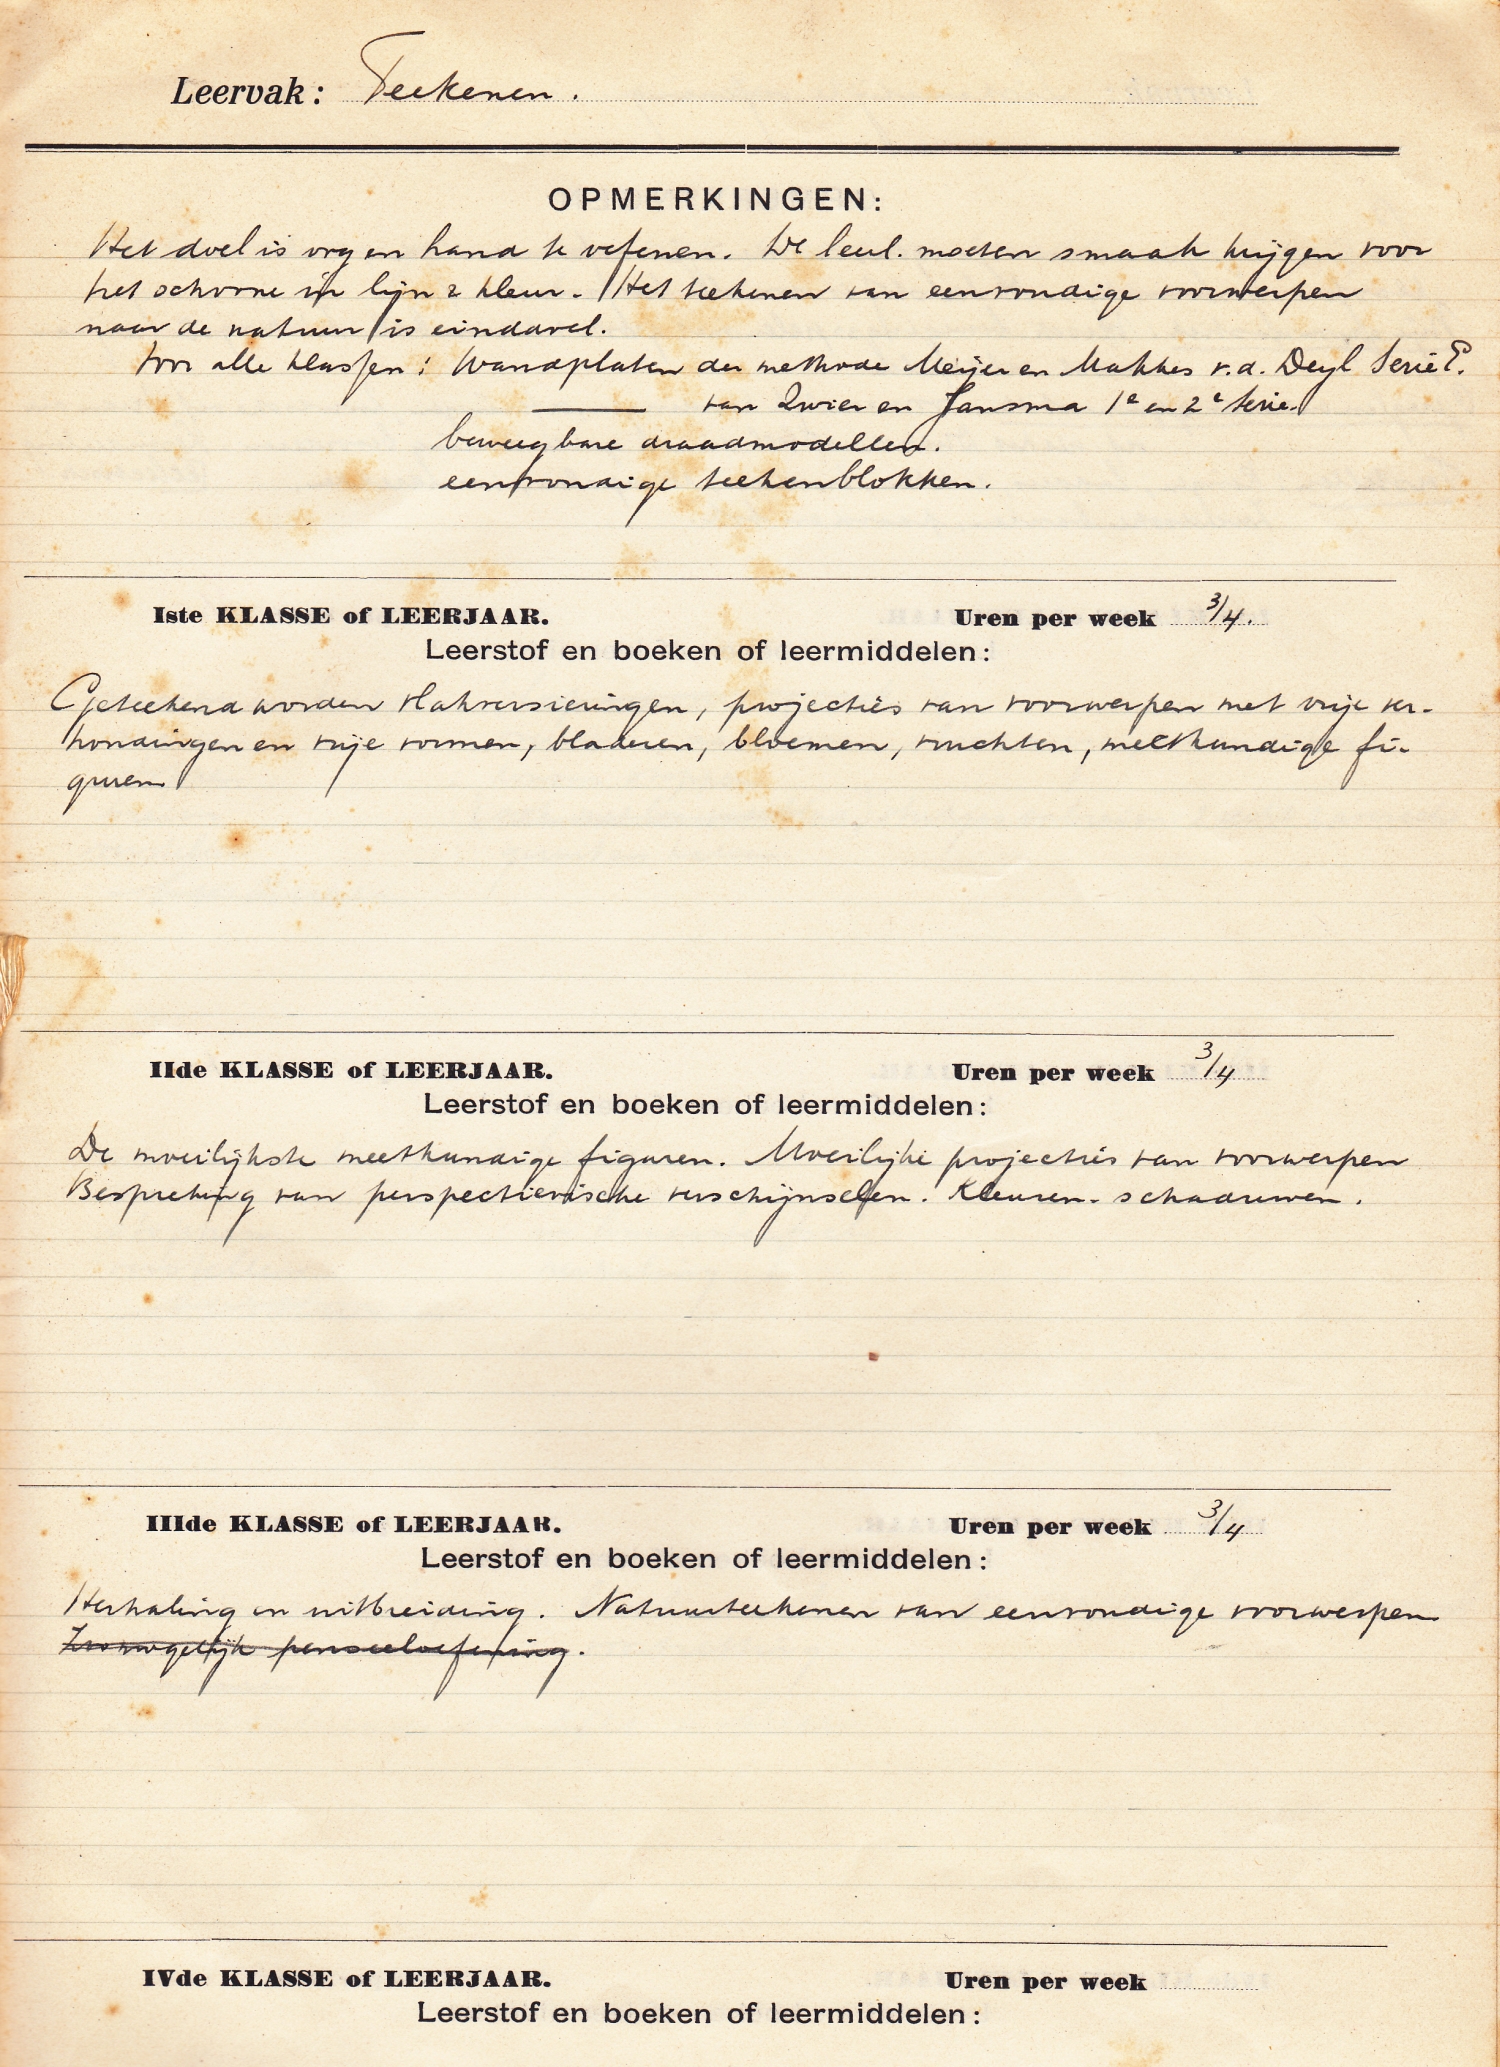 Leervak: Teekenen.
OPMERKINGEN:
Het doel is oog en hand te oefenen. De leerl. moeten smaak krijgen voor
het schoone in lijn & kleur. Het teekenen van eenvoudige voorwerpen
naar de natuur is einddoel.
Voor alle klassen: Wandplaten der methode Meijer en Makkes v.d. Deyl Serie E.
——— van Zwier en Jansma 1e en 2e Serie.
beweegbare draadmodellen.
eenvoudige teekenblokken.
Iste KLASSE of LEERJAAR. Uren per week 3/4.
Leerstof en boeken of leermiddelen:
Geteekend worden vlakversieringen, projecties van voorwerpen met vrije ver-
houdingen en vrije vormen, bladeren, bloemen, vruchten, meetkundige fi-
guren
IIde KLASSE of LEERJAAR. Uren per week 3/4
Leerstof en boeken of leermiddelen:
De moeilijkste meetkundige figuren. Moeilijke projecties van voorwerpen
Bespreking van perspectievische verschijnselen. Kleuren. schaduwen.
IIIde KLASSE of LEERJAAR. Uren per week 3/4
Leerstof en boeken of leermiddelen:
Herhaling en uitbreiding. Natuurteekenen van eenvoudige voorwerpen
Zoo mogelijk penseeloefening.
IVde KLASSE of LEERJAAR. Uren per week
Leerstof en boeken of leermiddelen: